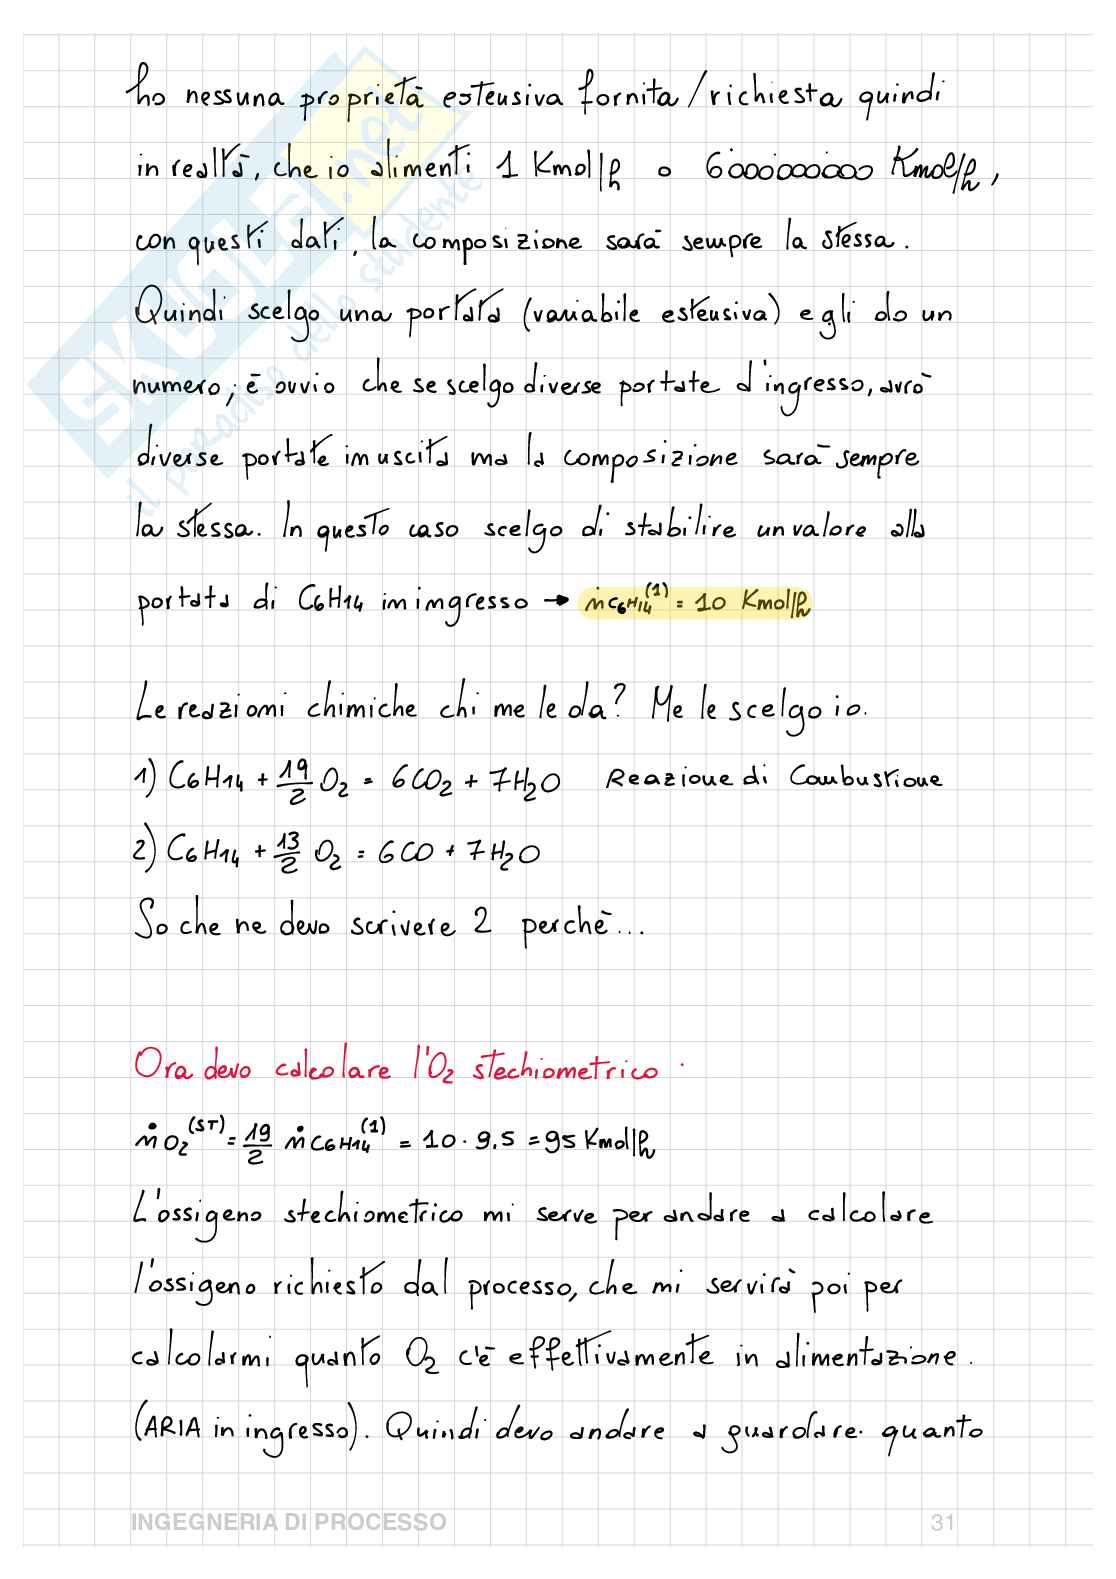 ho nessuna proprietà estensiva fornita/richiesta quindi
in realtà, che io alimenti 1 Kmol/h o 6000000000 Kmol/h,
con questi dati, la composizione sarà sempre la stessa.
Quindi scelgo una portata (variabile estensiva) e gli do un
numero; è ovvio che se scelgo diverse portate d'ingresso, avrò
diverse portate in uscita ma la composizione sarà sempre
la stessa. In questo caso scelgo di stabilire un valore alla
portata di C6H14 in ingresso → ṅC6H14(1) = 10 Kmol/h
Le reazioni chimiche chi me le da? Me le scelgo io.
1) C6H14 + 19/2 O2 = 6CO2 + 7H2O Reazione di Combustione
2) C6H14 + 13/2 O2 = 6CO + 7H2O
So che ne devo scrivere 2 perchè...
Ora devo calcolare l'O2 stechiometrico.
ṅO2(ST) = 19/2 ṅC6H14(1) = 10 · 9.5 = 95 Kmol/h
L'ossigeno stechiometrico mi serve per andare a calcolare
l'ossigeno richiesto dal processo, che mi servirà poi per
calcolarmi quanto O2 c'è effettivamente in alimentazione.
(ARIA in ingresso). Quindi devo andare a guardare quanto
INGEGNERIA DI PROCESSO 31
SKUOLA.net
il paradiso dello studente